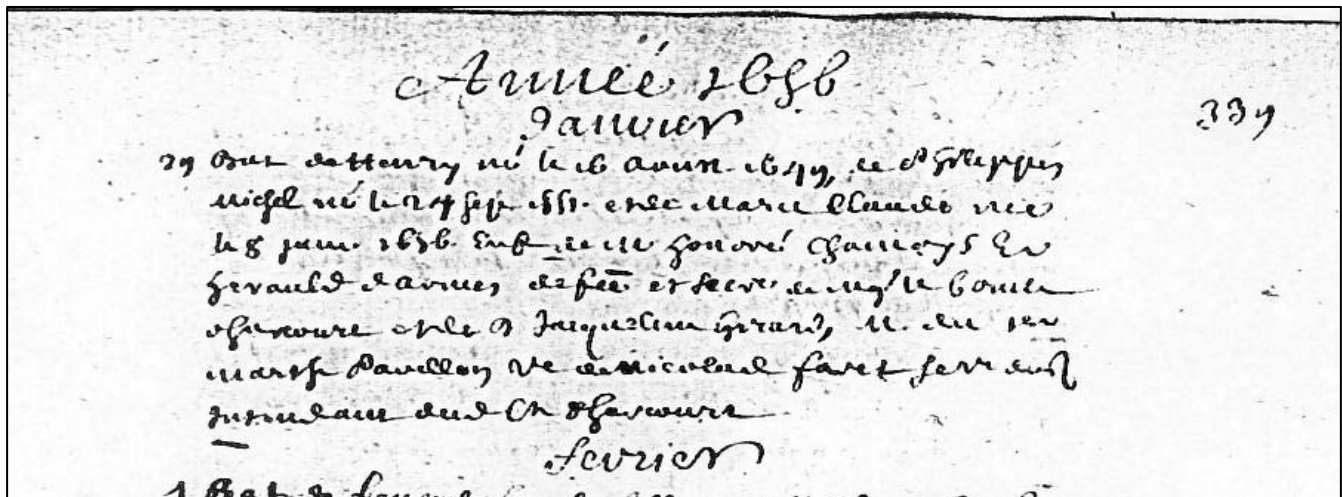 Année 1656
Janvier
339
29 Bat de Henry né le 16 Aoust 1649, de Philippes
Michel né le 24 sep 1651 et de Marie Claude née
le 8 juin 1656 Enf de M honoré Chamoys Er
herauld d'armes de fce et secre de Mgr le Comte
d'harcourt et de D Jacqueline Girard, M. du 1er
Marthe Pavillon ve de Nicolas faret secre
Intendant dud Cte d'harcourt
fevrier